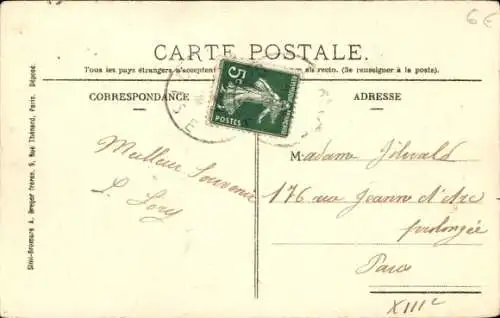 6€
CARTE POSTALE.
Tous les pays étrangers n'acceptent als recto. (Se renseigner à la poste).
CORRESPONDANCE
ADRESSE
5c
POSTES
Meilleur Souvenir
L.
Madame
176 rue Jeanne d'Arc
prolongée
Paris
XIIIe
Simi-Bromure A. Breger frères, 9, Rue Thénard, Paris. Déposé.